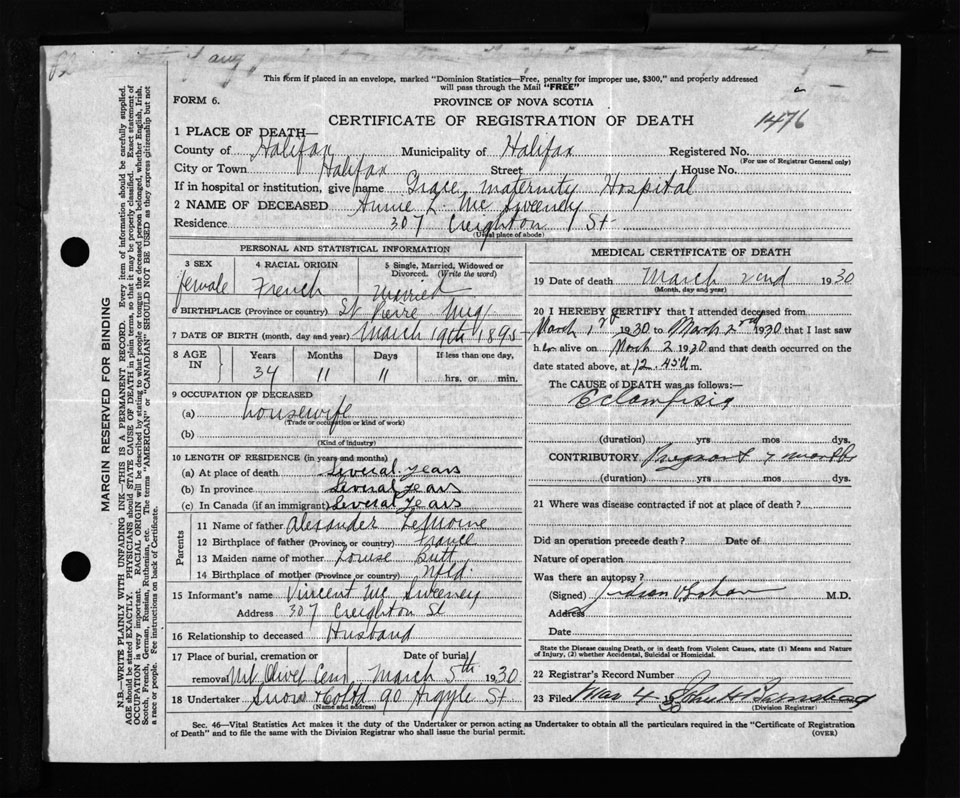 aug
This form if placed in an envelope, marked "Dominion Statistics—Free, penalty for improper use, $300," and properly addressed
will pass through the Mail "FREE"
FORM 6.
PROVINCE OF NOVA SCOTIA
CERTIFICATE OF REGISTRATION OF DEATH
1476
1 PLACE OF DEATH—
County of Halifax Municipality of Halifax Registered No.
(For use of Registrar General only)
City or Town Halifax Street House No.
If in hospital or institution, give name Grace Maternity Hospital
2 NAME OF DECEASED Annie L. Mc Sweeney
Residence 307 Creighton St
(Usual place of abode)
PERSONAL AND STATISTICAL INFORMATION
3 SEX 4 RACIAL ORIGIN 5 Single, Married, Widowed or
Divorced. (Write the word)
female French Married
6 BIRTHPLACE (Province or country) St Pierre Miq
7 DATE OF BIRTH (month, day and year) March 19th 1895
8 AGE IN Years Months Days If less than one day,
34 11 11 hrs. or min.
9 OCCUPATION OF DECEASED
(a) housewife
(Trade or occupation or kind of work)
(b)
(Kind of industry)
10 LENGTH OF RESIDENCE (in years and months)
(a) At place of death Several years
(b) In province Several years
(c) In Canada (if an immigrant) Several years
Parents
11 Name of father Alexander LeMoine
12 Birthplace of father (Province or country) France
13 Maiden name of mother Louise Butt
14 Birthplace of mother (Province or country) Nfld.
15 Informant's name Vincent Mc Sweeney
Address 307 Creighton St
16 Relationship to deceased Husband
17 Place of burial, cremation or removal Date of burial
Mt Olivet Cem. March 5th 1930
18 Undertaker Snow & Co Ltd 90 Argyle St
(Name and address)
MEDICAL CERTIFICATE OF DEATH
19 Date of death March 2nd 1930
(Month, day and year)
20 I HEREBY CERTIFY that I attended deceased from
March 1st 1930 to March 2nd 1930 that I last saw
her alive on March 2 1930 and that death occurred on the
date stated above, at 12.45 a m.
The CAUSE of DEATH was as follows:—
Eclampsia
(duration) yrs mos dys.
CONTRIBUTORY Pregnant 7 months
(duration) yrs mos dys.
21 Where was disease contracted if not at place of death?
Did an operation precede death? Date of
Nature of operation
Was there an autopsy?
(Signed) Judson V Graham M.D.
Address
Date
State the Disease causing Death, or in death from Violent Causes, state (1) Means and Nature
of Injury, (2) whether Accidental, Suicidal or Homicidal.
22 Registrar's Record Number
23 Filed Mar 4 30 John H
(Division Registrar)
Sec. 46—Vital Statistics Act makes it the duty of the Undertaker or person acting as Undertaker to obtain all the particulars required in the "Certificate of Registration
of Death" and to file the same with the Division Registrar who shall issue the burial permit.
(OVER)
MARGIN RESERVED FOR BINDING
N.B.—WRITE PLAINLY WITH UNFADING INK—THIS IS A PERMANENT RECORD. Every item of information should be carefully supplied.
AGE should be stated EXACTLY. PHYSICIANS should STATE CAUSE OF DEATH in plain terms, so that it may be properly classified. Exact statement of
OCCUPATION is very important. RACIAL ORIGIN will be described by stating to what people or tongue the deceased person belonged, whether English, Irish,
Scotch, French, German, Russian, Ruthenian, etc. The terms "AMERICAN" or "CANADIAN" SHOULD NOT BE USED as they express citizenship but not
a race or people. Fee instructions on back of Certificate.